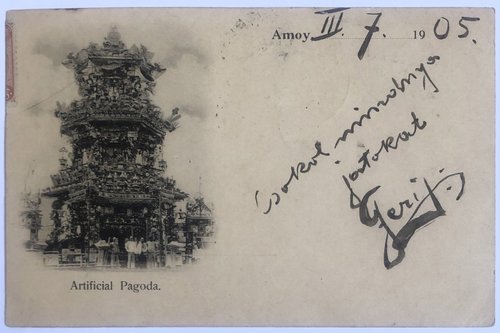 Amoy III. 7. 1905.
Csokol mindnya
jatokat
Artificial Pagoda.